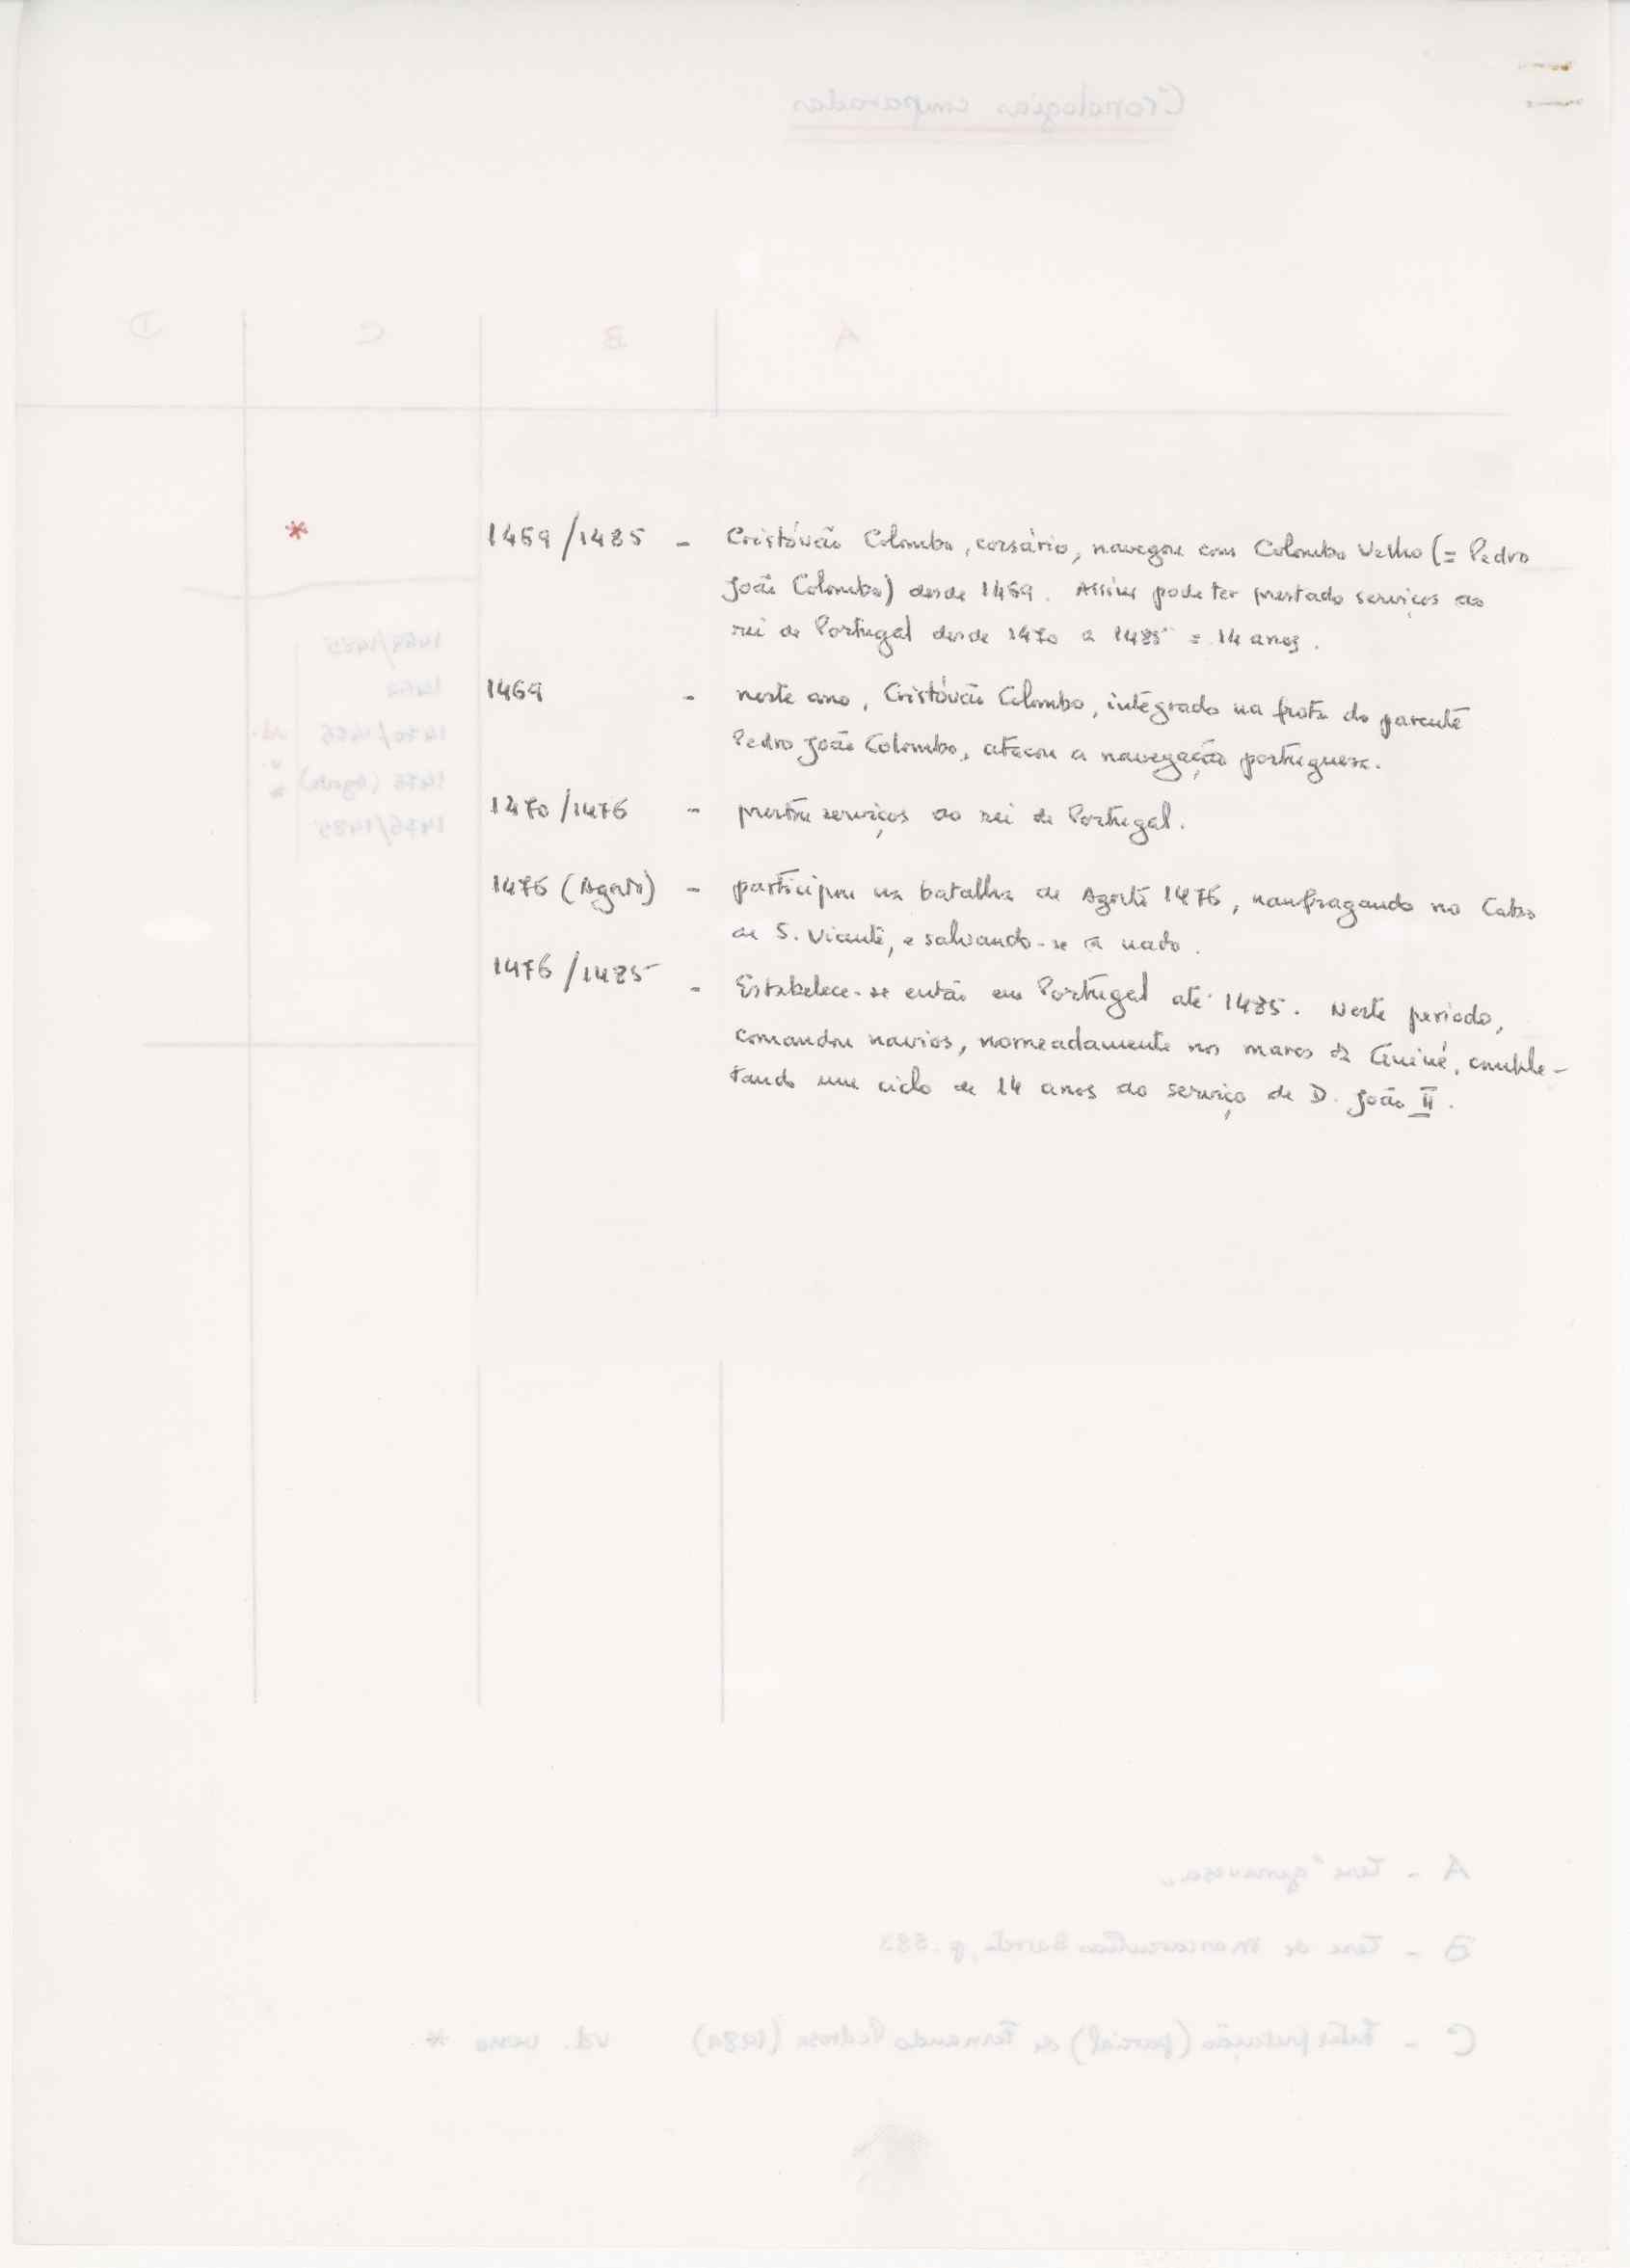 * 1469/1485 - Cristóvão Colombo, corsário, navegou com Colombo Velho (= Pedro
João Colombo) desde 1469. Assim pode ter prestado serviços ao
rei de Portugal desde 1470 a 1485 = 14 anos.
1469 - neste ano, Cristóvão Colombo, integrado na frota do parente
Pedro João Colombo, atacou a navegação portuguesa.
1470/1476 - prestou serviços ao rei de Portugal.
1476 (Agosto) - participou na batalha de Agosto 1476, naufragando no Cabo
de S. Vicente, e salvando-se a nado.
1476/1485 - Estabelece-se então em Portugal até 1485. Neste período,
comandou navios, nomeadamente nos mares da Guiné, comple-
tando um ciclo de 14 anos ao serviço de D. João II.